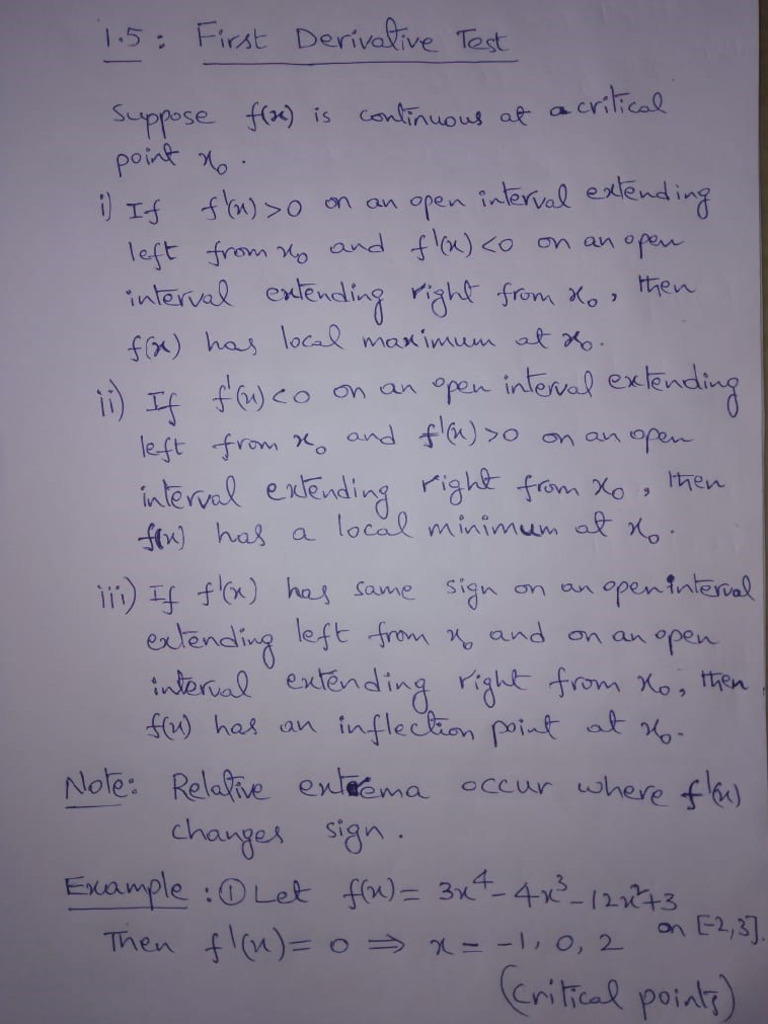 1.5: First Derivative Test
Suppose f(x) is continuous at a critical
point x₀.
i) If f'(x) > 0 on an open interval extending
left from x₀ and f'(x) < 0 on an open
interval extending right from x₀, then
f(x) has local maximum at x₀.
ii) If f'(x) < 0 on an open interval extending
left from x₀ and f'(x) > 0 on an open
interval extending right from x₀, then
f(x) has a local minimum at x₀.
iii) If f'(x) has same sign on an open interval
extending left from x₀ and on an open
interval extending right from x₀, then
f(x) has an inflection point at x₀.
Note: Relative extrema occur where f'(x)
changes sign.
Example: ① Let f(x) = 3x⁴ - 4x³ - 12x² + 3
on [-2,3].
Then f'(x) = 0 ⇒ x = -1, 0, 2
(critical points)